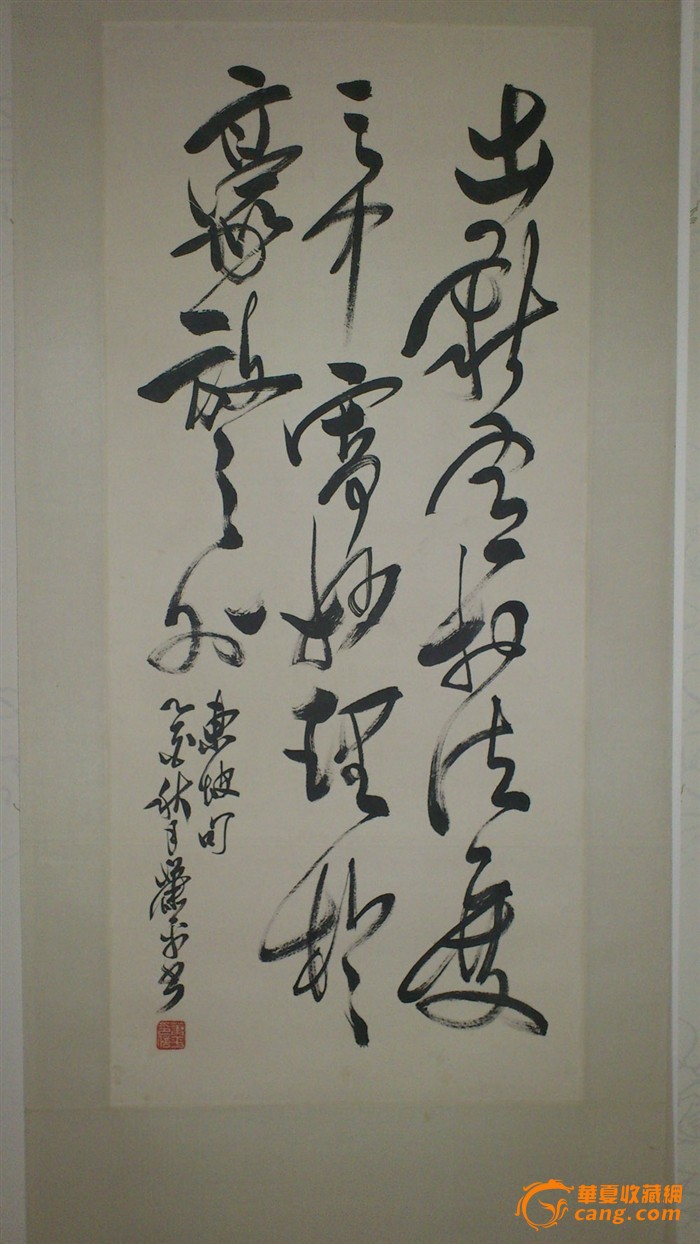 出新意於法度
之中寄妙理於
豪放之外
東坡句
乙 秋月 平書
華夏收藏網
cang.com